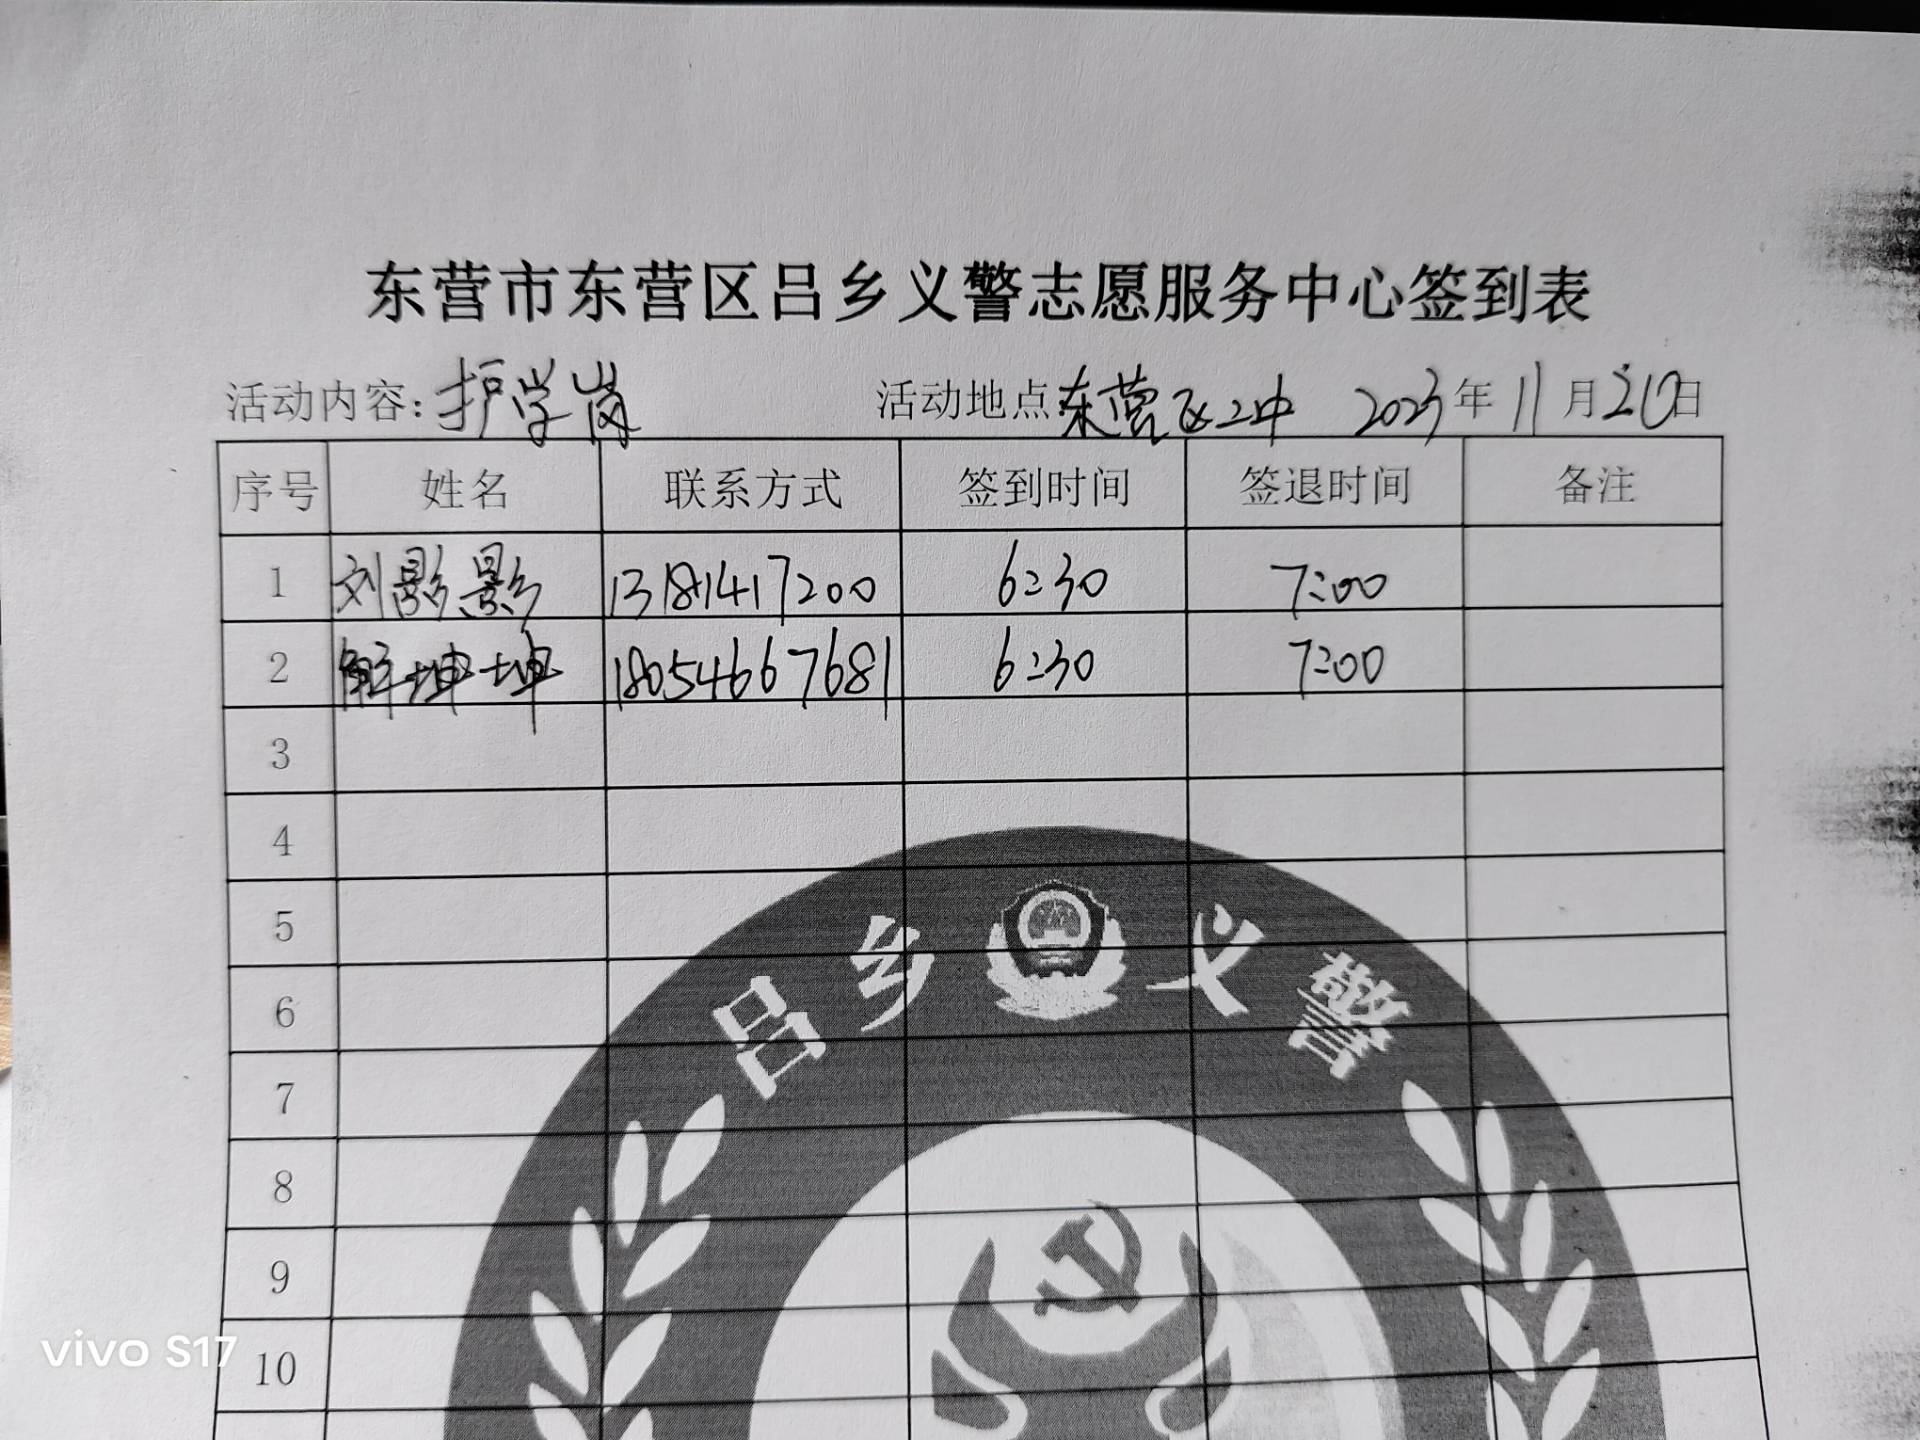 东营市东营区吕乡义警志愿服务中心签到表
活动内容:护学岗 活动地点:东营区二中 2023年11月20日
序号 姓名 联系方式 签到时间 签退时间 备注
1 刘影影 13181417200 6:30 7:00
2 解坤坤 18054667681 6:30 7:00
3
4
5
6
7
8
9
10
吕乡义警
vivo S17